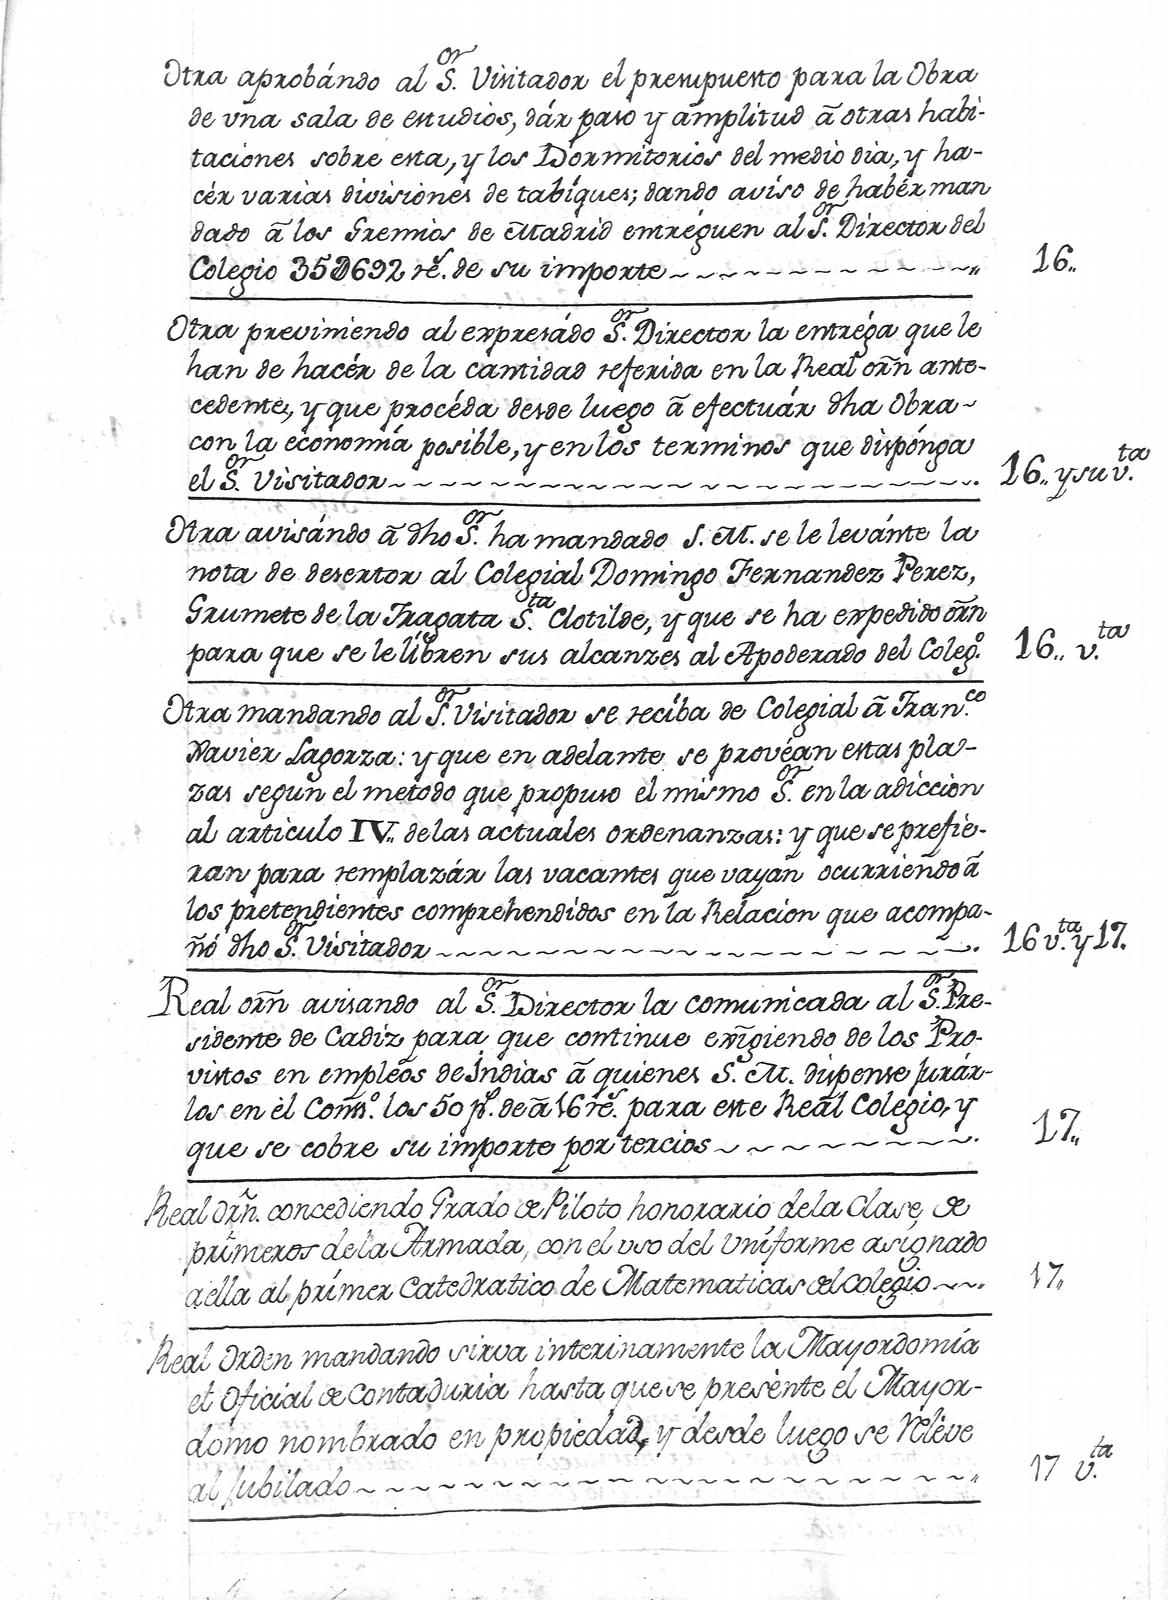 Otra aprobándo al S.or Visitador el presupuesto para la Obra
de vna sala de estudios, dár paso y amplitud ã otras habi-
taciones sobre esta, y los Dormitorios del medio dia, y ha-
cér varias divisiones de tabíques; dando avíso de habér man
dado ã los Gremios de Madrid entréguen al S.or Director del
Colegio 35D692 rs. de su importe ~ ~ ~ ~ ~ ~ ~ ~ ~ ~ „ 16„
Otra previniendo al expresádo S.or Director la entréga que le
han de hacér de la cantidad referida en la Real orñ ante-
cedente, y que procéda desde luego ã efectuár dha Obra ~
con la economía posible, y en los terminos que dispónga
el S.or Visitador ~ ~ ~ ~ ~ ~ ~ ~ ~ ~ ~ ~ ~ ~ ~ . 16„ y su v.ta
Otra avisándo ã dho S.or ha mandado S. M. se le levánte la
nota de desertor al Colegial Domingo Fernandez Perez,
Grumete de la Fragata S.ta Clotilde, y que se ha expedido orñ
para que se le líbren sus alcanzes al Apoderado del Coleg.o 16„ v.ta
Otra mandando al S.or Visitador se recíba de Colegial ã Fran.co
Xavier Lagorza: y que en adelante se provéan estas pla-
zas segun el metodo que propuso el mismo S.or en la adiccion
al articulo IV„ de las actuales ordenanzas: y que se prefie-
ran para remplazár las vacantes que vayan ocurriendo ã
los pretendientes comprehendidos en la Relacion que acompa-
ñó dho S.or Visitador ~ ~ ~ ~ ~ ~ ~ ~ ~ ~ ~ ~ ~ . 16 v.ta y 17.
Real orñ avisando al S.or Director la comunicada al S.or Pre-
sidente de Cadiz para que continue exigiendo de los Pro-
vistos en empleos de Indias ã quienes S. M. dispense jurár-
los en él Cons.o los 50 ps. de ã 16 rs. para este Real Colegio, y
que se cobre su importe por tercios ~ ~ ~ ~ ~ ~ ~ . 17„
Real Orñ. concediendo Grado de Piloto honorario dela Clase de
primeros de la Armada, con el vso del Uníforme asignado
aella al prímer Catedratico de Matematicas del Colegio ~ ~ . 17„
Real Orden mandando sirva interinamente la Mayordomía
el Oficial de Contaduria hasta que se presente el Mayor-
domo nombrado en propiedad, y desde luego se Reléve
al Jubilado ~ ~ ~ ~ ~ ~ ~ ~ ~ ~ ~ ~ ~ ~ ~ „ 17 v.ta